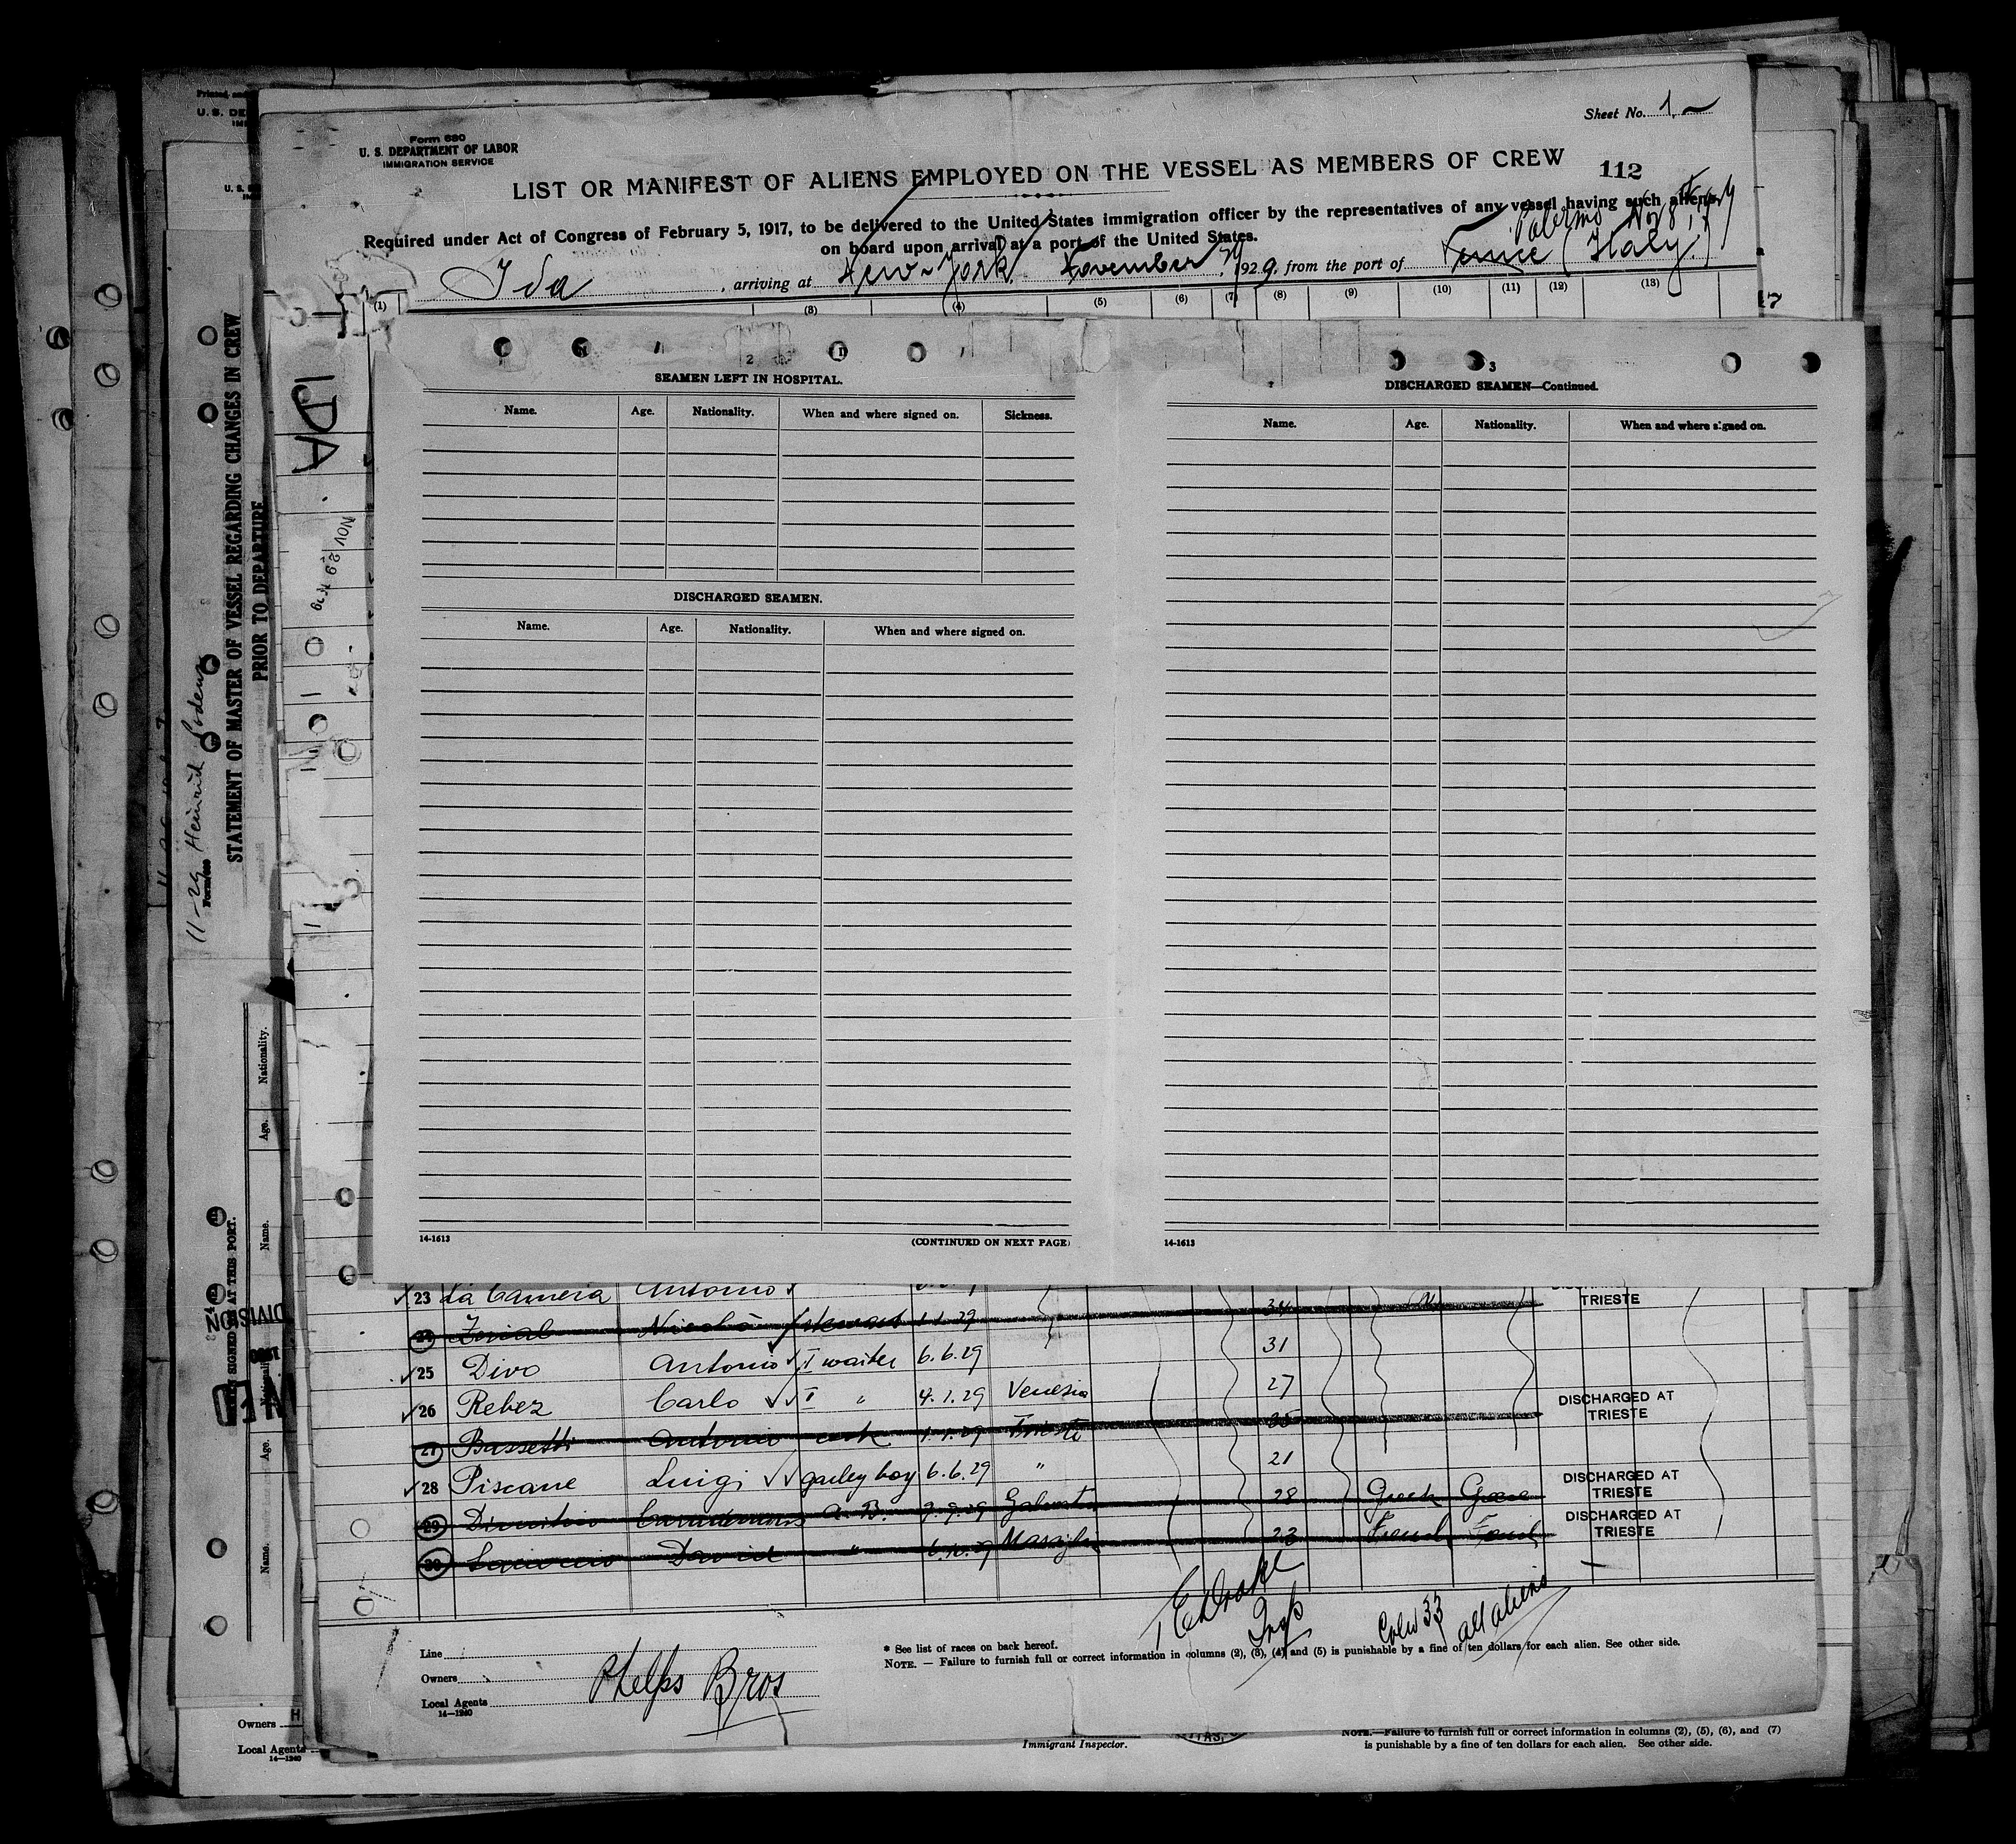 Sheet No. 1
Form 680
U. S. DEPARTMENT OF LABOR
IMMIGRATION SERVICE
LIST OR MANIFEST OF ALIENS EMPLOYED ON THE VESSEL AS MEMBERS OF CREW
112
Required under Act of Congress of February 5, 1917, to be delivered to the United States immigration officer by the representatives of any vessel having such aliens
on board upon arrival at a port of the United States.
Palermo Nov 8,
Ida, arriving at New-York November 29, 1929, from the port of Venice (Italy)
(1) (3) (4) (5) (6) (7) (8) (9) (10) (11) (12) (13)
IDA
NOV 29 1929
2
SEAMEN LEFT IN HOSPITAL.
Name. Age. Nationality. When and where signed on. Sickness.
DISCHARGED SEAMEN.
Name. Age. Nationality. When and where signed on.
14-1613
(CONTINUED ON NEXT PAGE)
3
DISCHARGED SEAMEN—Continued.
Name. Age. Nationality. When and where signed on.
14-1613
23 La Camera Antonio TRIESTE
24 Nicolò steward 1.1.29 34
25 Divo Antonio I waiter 6.6.29 31
26 Rebez Carlo I " 4.1.29 Venezia 27 DISCHARGED AT TRIESTE
27 Bassetti Antonio cook 1.1.29 Trieste 35
28 Piscane Luigi galley boy 6.6.29 " 21 DISCHARGED AT TRIESTE
29 Dimitrio A.B. 9.9.29 Galveston 28 Greek Greece DISCHARGED AT TRIESTE
30 David " 6.10.29 Marsiglia 23 French
Insp
Crew 33 all aliens
* See list of races on back hereof.
NOTE. — Failure to furnish full or correct information in columns (2), (3), (4) and (5) is punishable by a fine of ten dollars for each alien. See other side.
Line
Owners
Local Agents
14—1240
Phelps Bros
Immigrant Inspector.
NOTE.—Failure to furnish full or correct information in columns (2), (5), (6), and (7)
is punishable by a fine of ten dollars for each alien. See other side.
Owners H
Local Agents
14—1240
11-29 Heinrich
STATEMENT OF MASTER OF VESSEL REGARDING CHANGES IN CREW
PRIOR TO DEPARTURE
SIGNED AT THIS PORT.
Name. Age. Nationality.
Name. Age.
DIVISION